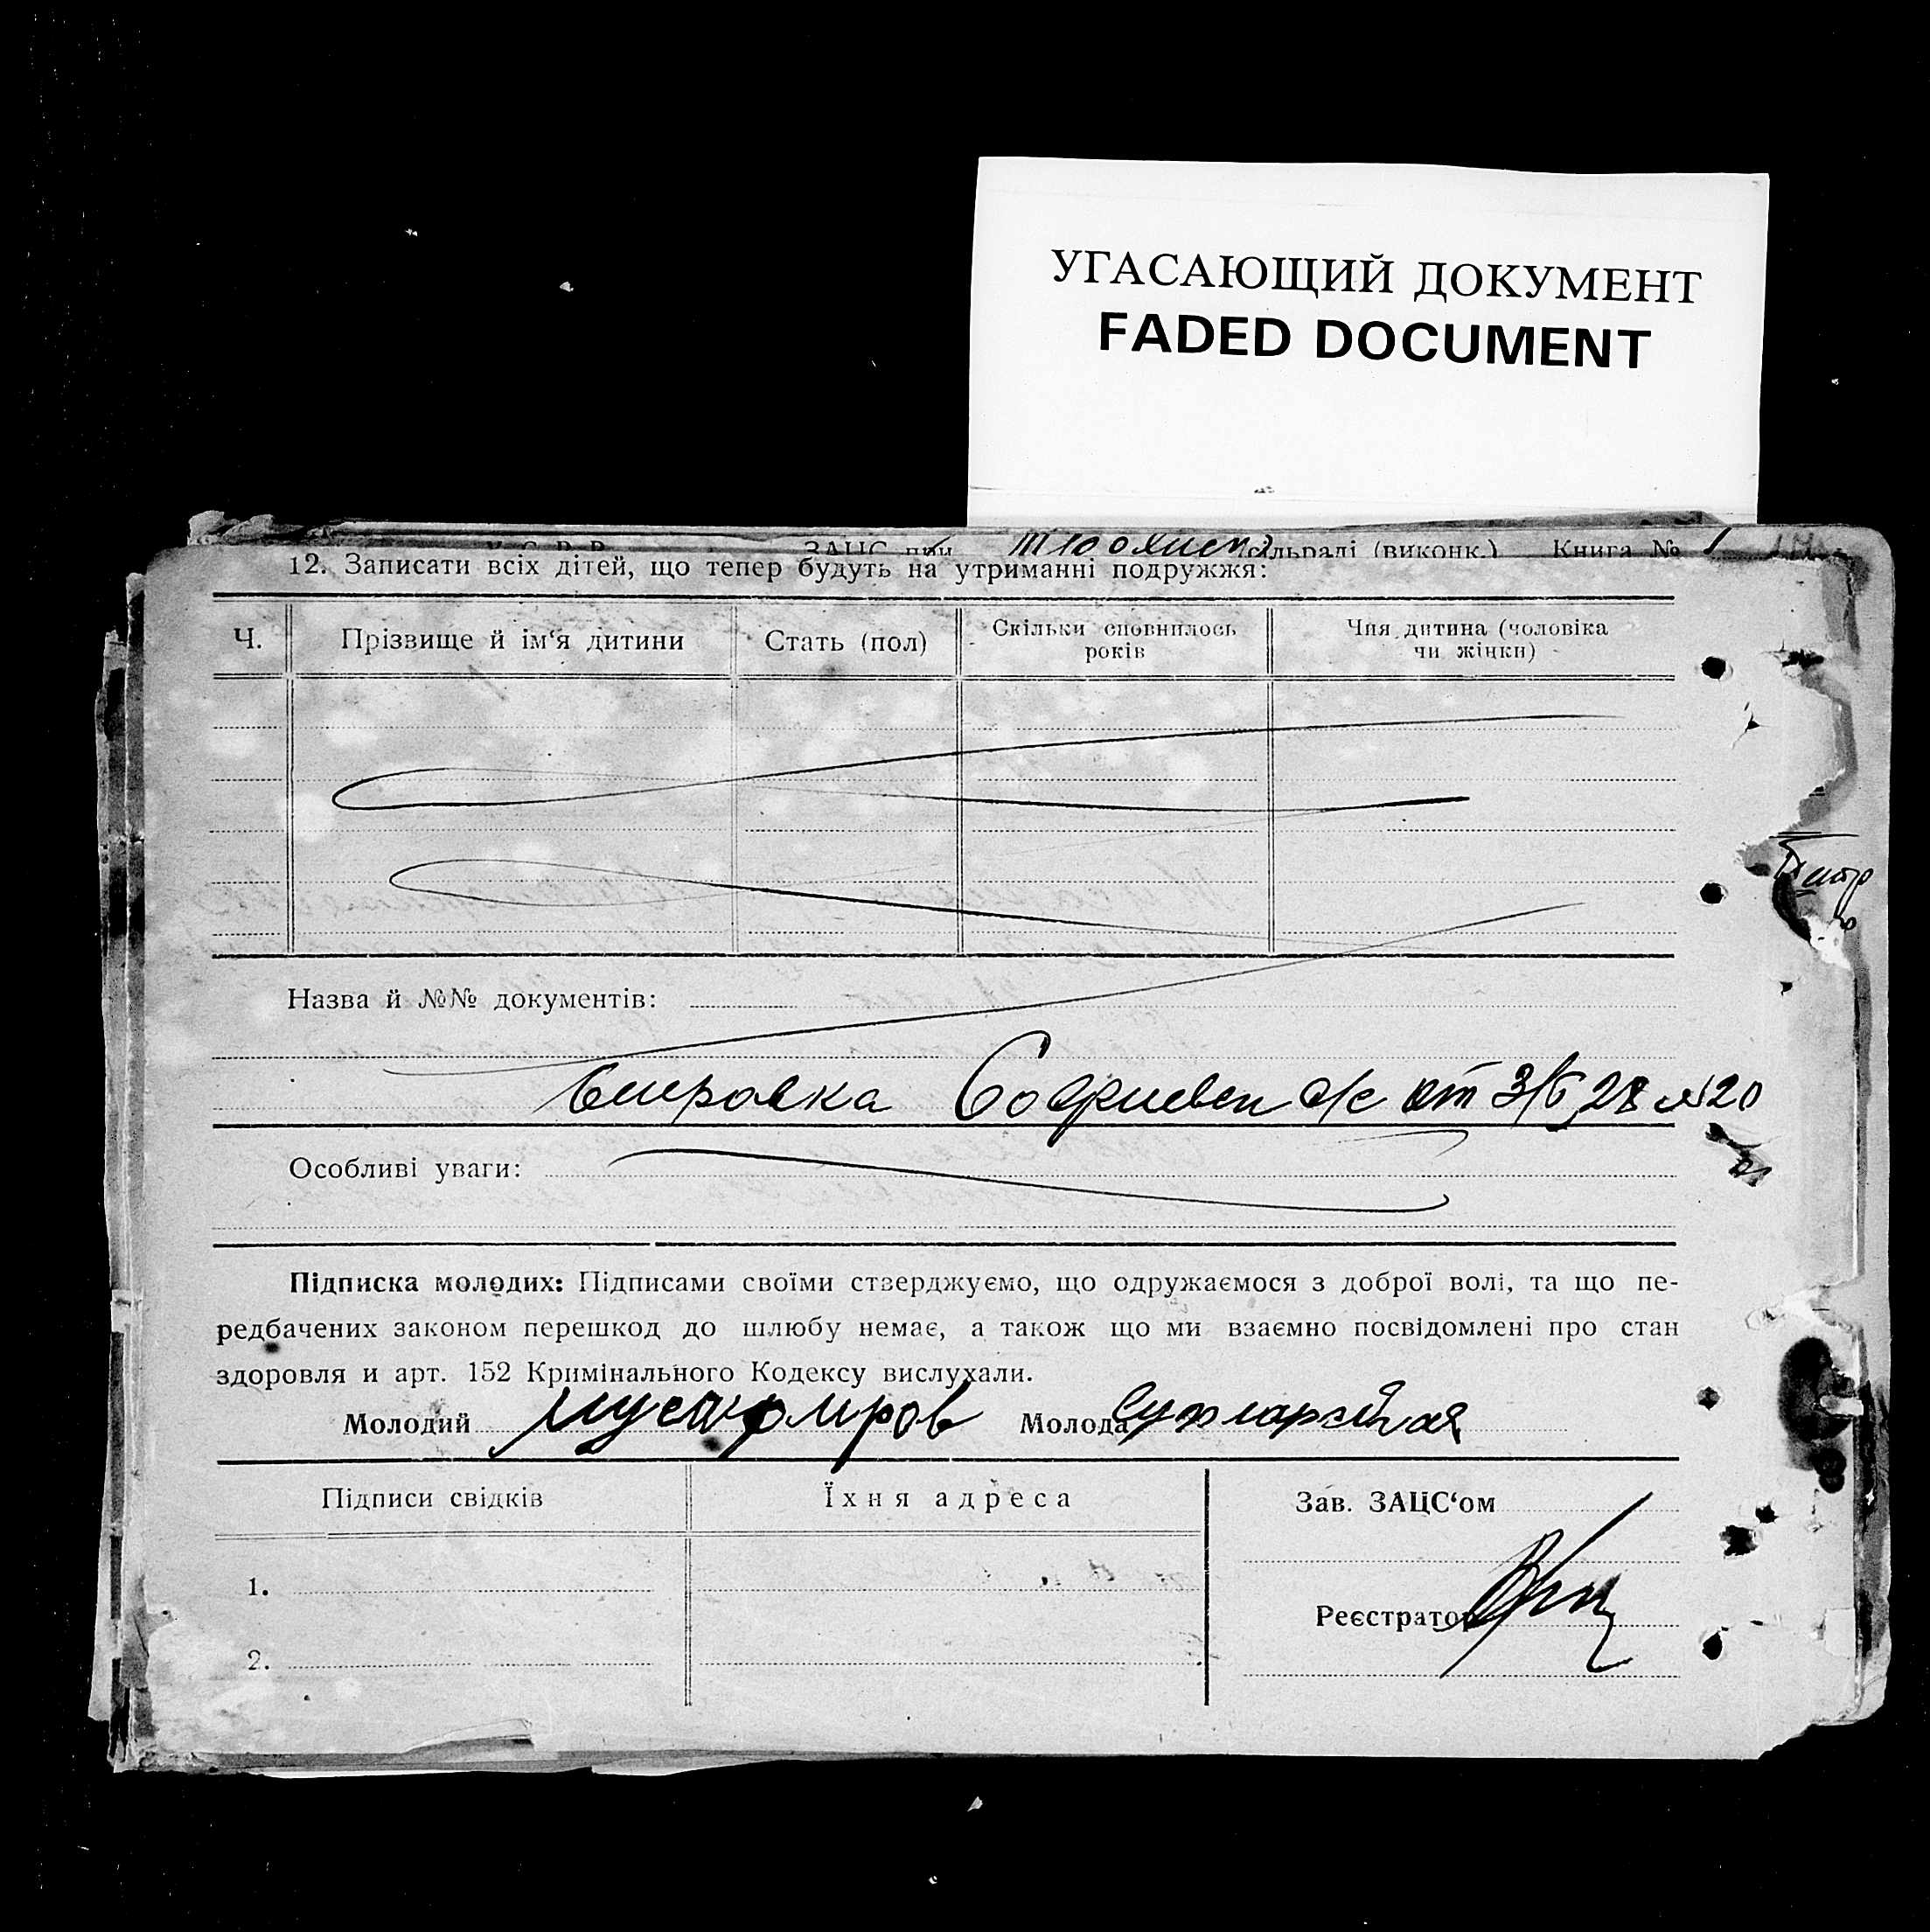 УГАСАЮЩИЙ ДОКУМЕНТ
FADED DOCUMENT
У. С. Р. Р. ЗАЦС при сільраді (виконк.) Книга № 1
12. Записати всіх дітей, що тепер будуть на утриманні подружжя:
Ч. Прізвище й ім‘я дитини Стать (пол) Скільки сповнилось років Чия дитина (чоловіка чи жінки)
Назва й №№ документів:
с/с от 3/5 28 №20
Особливі уваги:
Підписка молодих: Підписами своїми стверджуємо, що одружаємося з доброї волі, та що пе-
редбачених законом перешкод до шлюбу немає, а також що ми взаємно посвідомлені про стан
здоровля и арт. 152 Кримінального Кодексу вислухали.
Молодий Молода
Підписи свідків Їхня адреса Зав. ЗАЦС‘ом
1.
Реєстратор
2.